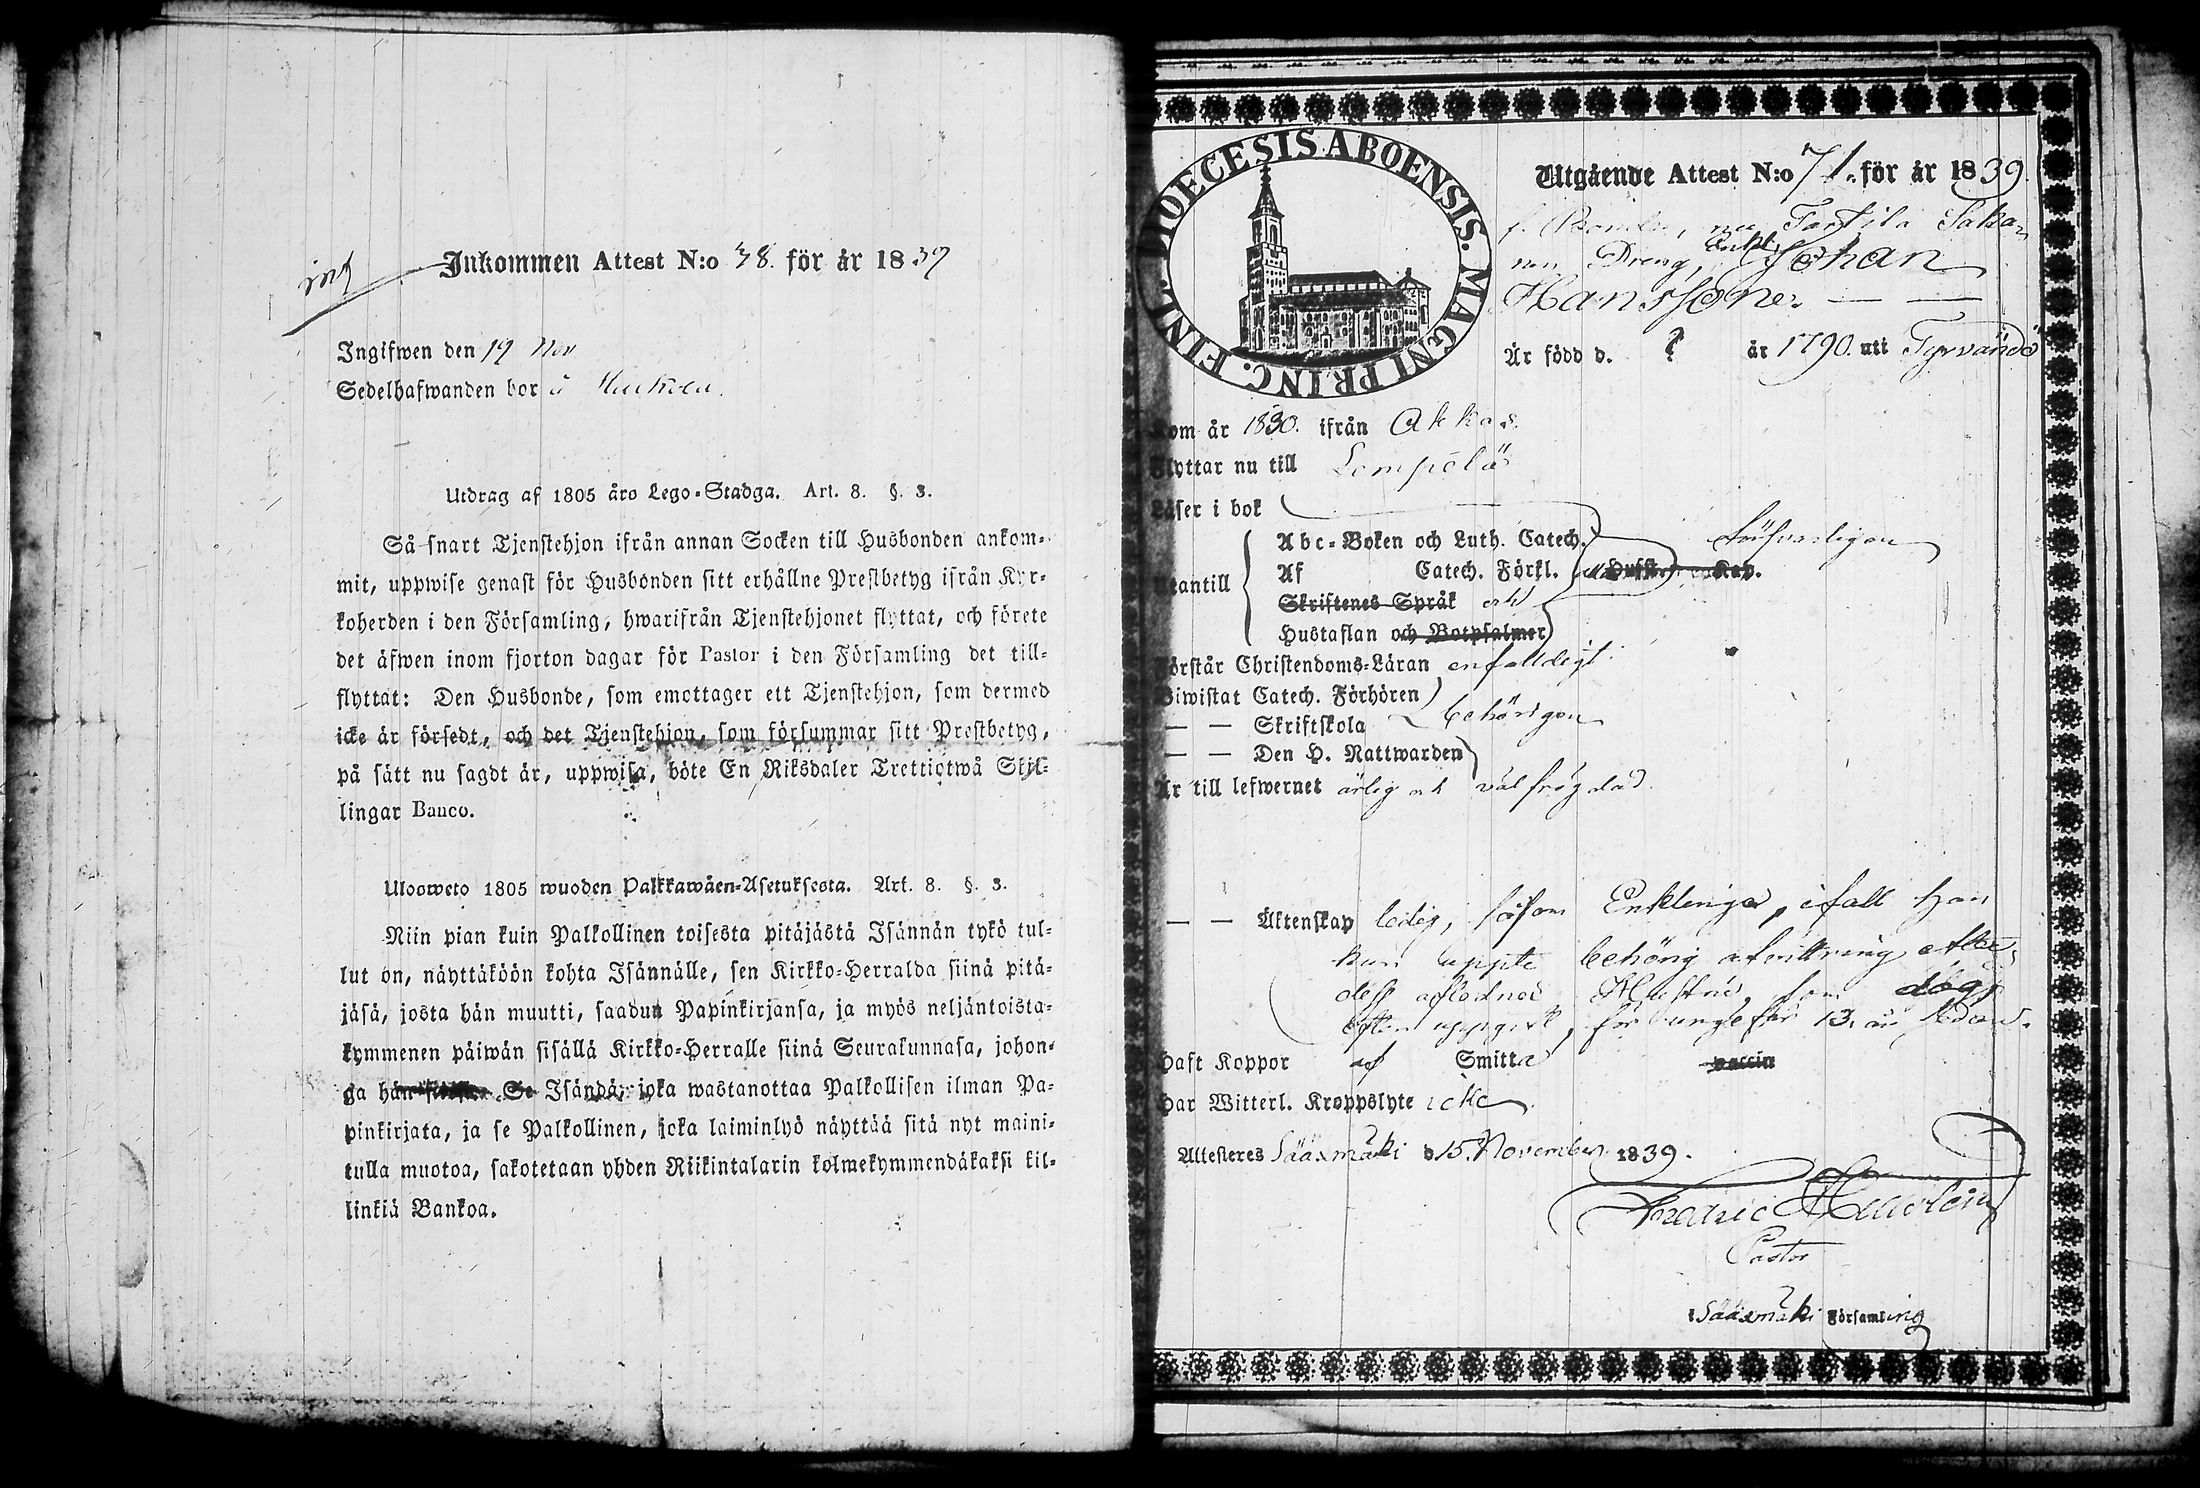 Inkommen Attest N:o 38. för år 1839
Ingifwen den 19 Nov
Sedelhafwanden bor å
Utdrag af 1805 års Lego-Stadga. Art. 8. §. 3.
Så snart Tjenstehjon ifrån annan Socken till Husbonden ankom-
mit, uppwise genast för Husbonden sitt erhållne Prestbetyg ifrån Kyr-
koherden i den Församling, hwarifrån Tjenstehjonet flyttat, och förete
det äfwen inom fjorton dagar för Pastor i den Församling det till-
flyttat: Den Husbonde, som emottager ett Tjenstehjon, som dermed
icke är försedt, och det Tjenstehjon, som försummar sitt Prestbetyg,
på sätt nu sagdt är, uppwisa, böte En Riksdaler Trettiotwå Skil-
lingar Banco.
Ulosweto 1805 wuoden Palkkawäen-Asetuksesta. Art. 8. §. 3.
Niin pian kuin Palkollinen toisesta pitäjästä Isännän tykö tul-
lut on, näyttäköön kohta Isännälle, sen Kirkko-Herralda siinä pitä-
jäsä, josta hän muutti, saadun Papinkirjansa, ja myös neljäntoista-
kymmenen päiwän sisällä Kirkko-Herralle siinä Seurakunnasa, johon-
ga hän Se Isändä, joka wastanottaa Palkollisen ilman Pa-
pinkirjata, ja se Palkollinen, joka laiminlyö näyttää sitä nyt maini-
tulla muotoa, sakotetaan yhden Riikintalarin kolmekymmendäkaksi kil-
linkiä Bankoa.
DIOECESIS ABOENSIS. MAGNI PRINC. FINL.
Utgående Attest N:o 71. för år 1839
f. nu
Dreng, Enkl. Johan
Hansson
Är född d. ? år 1790. uti Tyrvändö
Kom år 1830. ifrån Akkas
Flyttar nu till Lempelä
Läser i bok
Abc-Boken och Luth. Catech.
Utantill Af Catech. Förkl. Kap.
Skriftenes Språk och
Hustaflan och Botpsalmer
Förstår Christendoms-Läran enfaldigt
Biwistat Catech. Förhören
— — Skriftskola behörigen
— — Den H. Nattwarden
Är till lefwernet ärlig och välfrägdad
— — Äktenskap ledig, såsom Enkling, ifall han
kan uppte behörig afvittring efter
dess aflidna Hustru, som dog,
efter uppgift, för ungefär 13. år sedan.
Haft Koppor af Smitta vaccin
Har Witterl. Kroppslyte icke
Attesteres Sääxmäki d. 15. November 1839.
Pastor
i Sääxmäki Församling